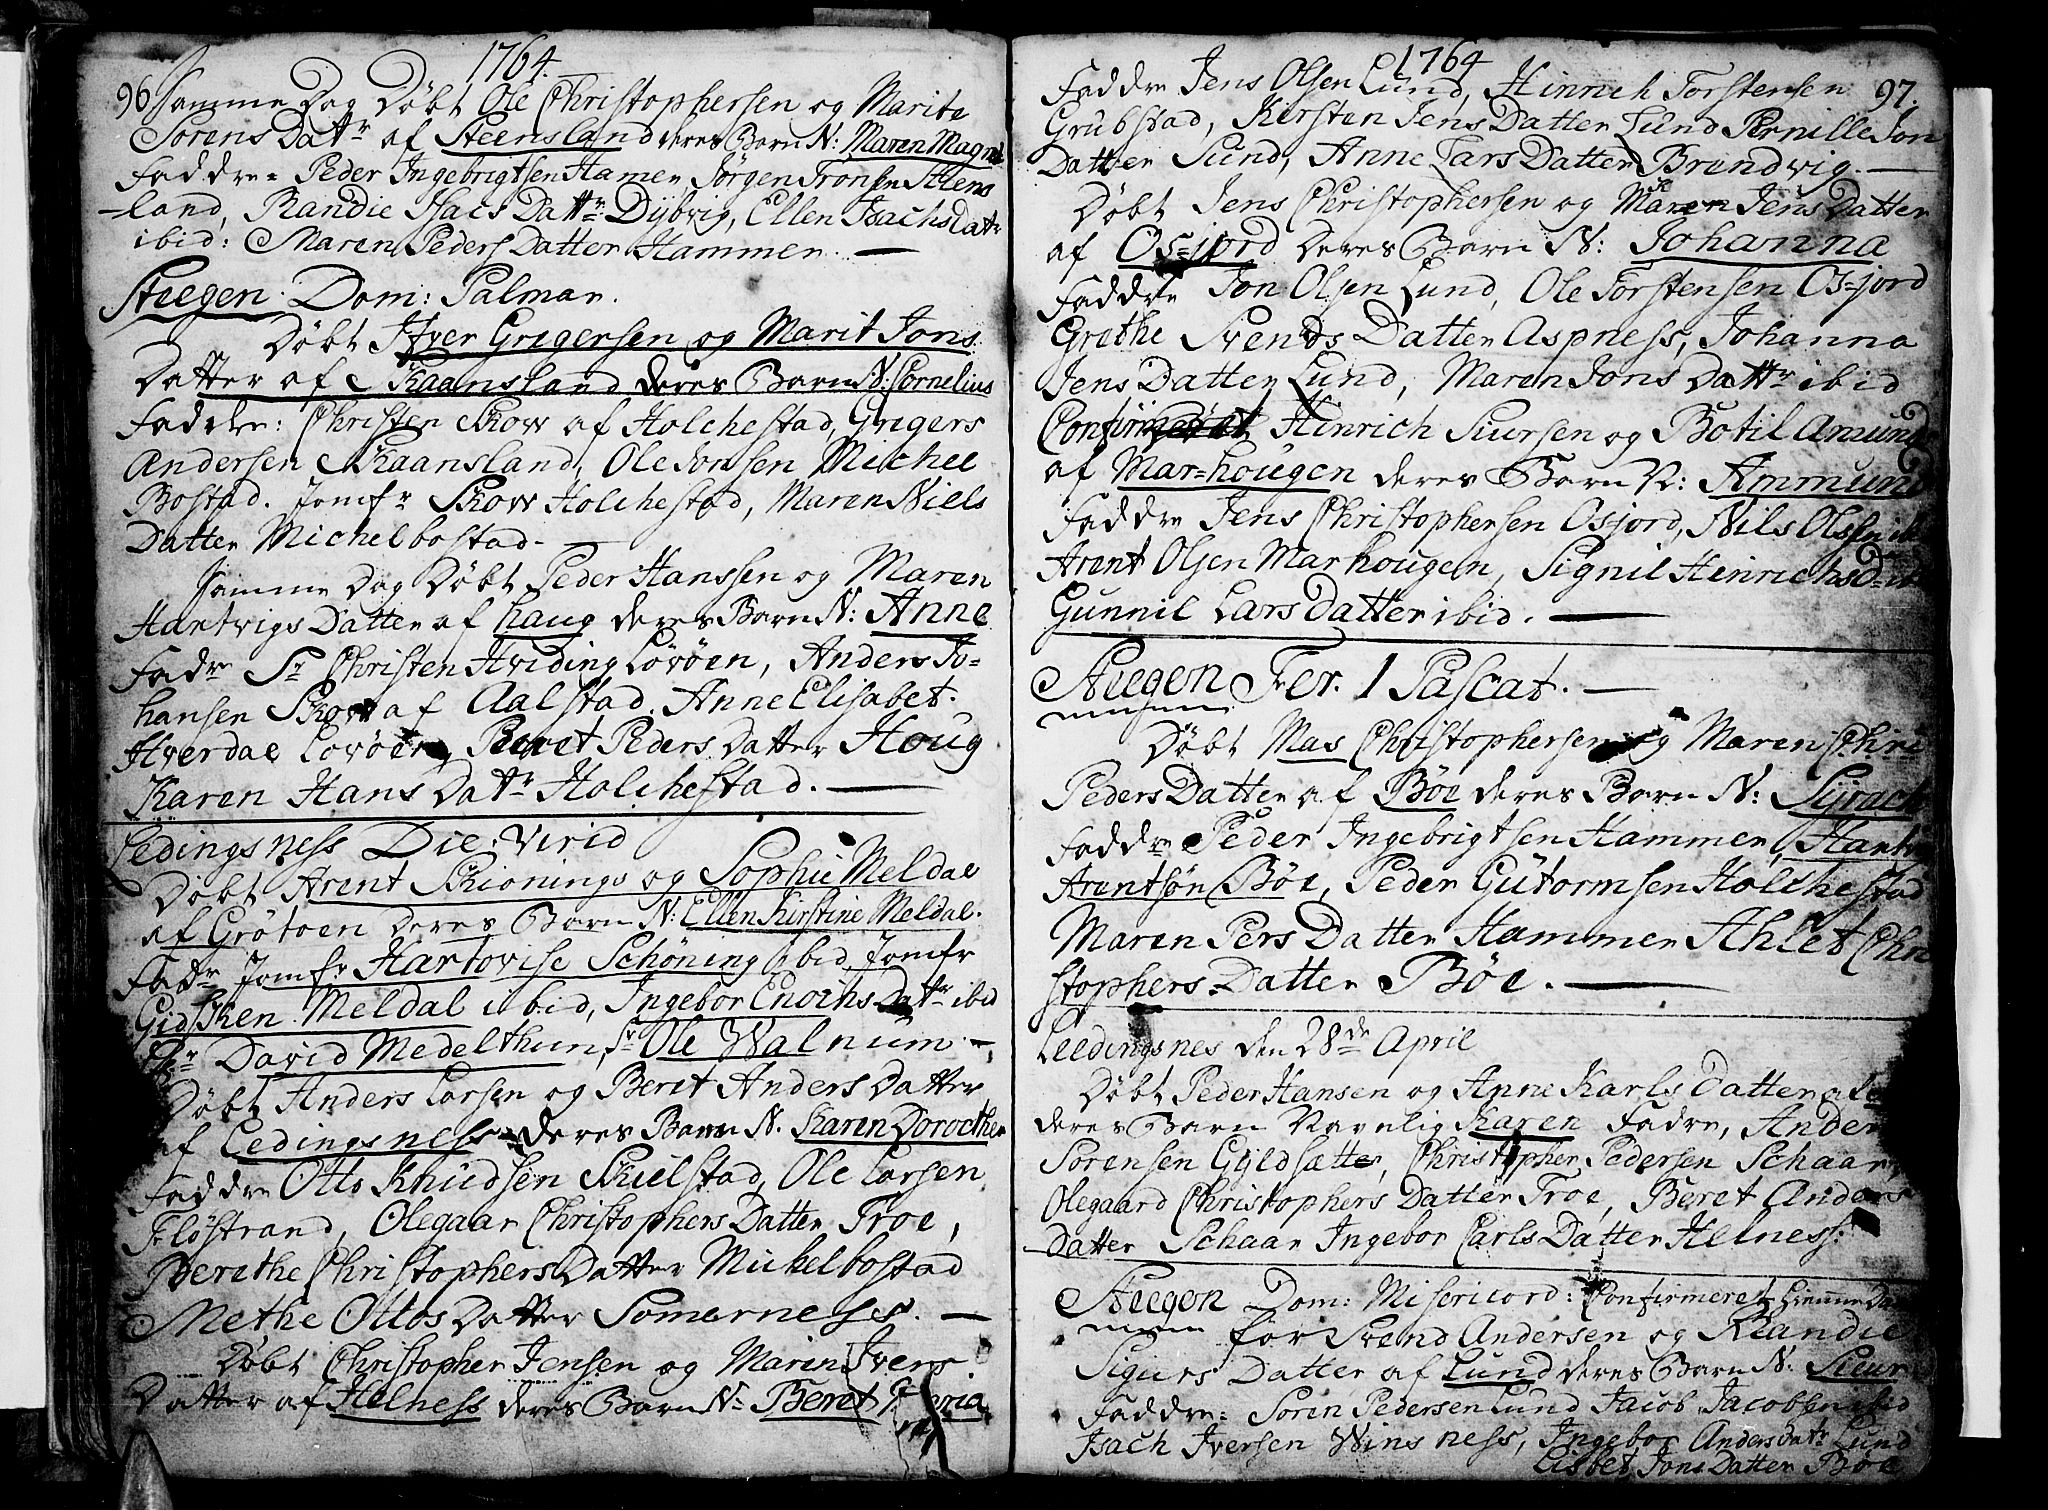 1764.
96 samme Dag Døbt Ole Christophersen og Marite
Sørens Dattr af Steensland deres Barn N: Maren Magr
Faddre = Peder Ingebrigtsen Hamer, Jørgen Tronsen Steens
-land, Randie Isacs Dattr Dybvig, Ellen Isachsdatr
ibid: Maren Peders Datter Hammer. —
Steegen. Dom: Palmar.
Døbt Iffver Gregersen og Marit Jons
Datter af Skaansland deres Barn N: Cornelius
Faddre: Christen Skow af Holchestad, Gregers
Andersen Skaansland, Ole Jonsen Michel
Bostad. Jomfr Skow Holchestad, Maren Niels
Datter Michelbostad. —
samme Dag Døbt Peder Hanssen og Maren
Hartvigs Datter af haug deres Barn N: Anne
Fadre Sr Christen Hviding Lovøen, Anders Jo-
hansen Skow af Aalstad, Anne Elisabet
Hverdal Lovøen, Beret Peders Datter Houg
Karen Hans Dattr Holchestad. —
Ledingsness Die: Virid
Døbt Arent Skionings og Sophie Meldal
af Grøtøen deres Barn N: Ellen Kirstine Meldal.
Fadr Jomfr Hartovise Schöning ibid, Jomfr
Gidsken Meldal ibid, Ingebor Enochs Dattr ibid
Sr David Medelthun, Sr Ole Walnum. —
Døbt Anders Larsen og Beret Anders Datter
af Ledingsness deres Barn N. Karen Dorothea
Faddre Otto Knudsen Skielstad, Ole Larsen
Fløstrand, Olegaar Christophers Datter Troe,
Berethe Christophers Datter Mickelbostad
Methe Ottos Datter Somerness. —
Døbt Christopher Jensen og Maren Ivers
Datter af Helness deres Barn N: Beret Maria
1764
97.
Faddre Jens Olsen Lund, Hinrich Torstensen
Grubstad, Kirsten Jens Datter Lund Pernille Jon
Datter Lund, Anne Lars Datter Brendvig. —
Døbt Jens Christophersen og Maren Jens Datter
af Os-jord deres Barn N: Johanna
Faddre Jon Olsen Lund, Ole Torstensen Os-jord
Grethe Svends Datter Aspness, Johanna
Jens Datter Lund, Maren Jons Dattr ibid
Confirmeret Hinrich Siursen og Botil Amunds
af Mar-hougen deres Barn N: Ammund
Faddre Jens Christophersen Osjord, Nils Olsen ib
Arent Olsen Marhougen, Signil Hinrichs D: ib
Gunnil Lars Datter ibid. —
Steegen Fer. 1 Pascat. —
Døbt Mas Christophersen og Maren Chri
Peders Datter af Böe deres Barn N: Syrach
Faddre Peder Ingebrigtsen Hammer, Hartvi
Arentsøn Böe, Peder Gutormsen Holchestad
Maren Pers Datter Hammer Ahlet Chri
stophers Datter Böe. —
Leedingsnes den 28de April
Døbt Peder Hansen og Anne Karls Datter af
deres Barn Navnlig Karen Fadre, Ander
Sørensen Gyldsætter, Christopher Pedersen Schaar,
Olegaard Christophers Datter Troe, Beret Anders
Datter Schaar Ingebor Carls Datter Helness:
Steegen Dom: Misericord: Confirmeret hiemme Daab
for Svend Andersen og Randie
Sigurs Datter af Lund deres Barn N: Siur
Faddre: Sørin Pedersen Lund Jacob Jacobsen ibid
Isach Iversen Winsness, Ingebor Anders datr Lund
Lisbet Jons Datter Böe